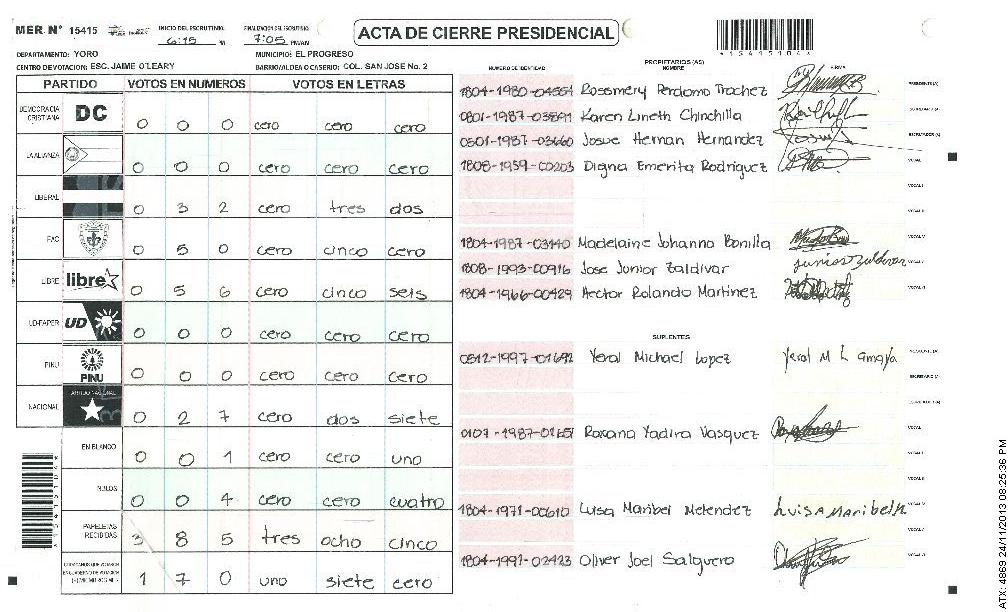 MER. N° 15415
INICIO DEL ESCRUTINIO: 6:15 PM
FINALIZACION DEL ESCRUTINIO: 7:05 PM/AM
ACTA DE CIERRE PRESIDENCIAL
DEPARTAMENTO: YORO
MUNICIPIO: EL PROGRESO
CENTRO DE VOTACION: ESC. JAIME O'LEARY
BARRIO/ALDEA O CASERIO: COL. SAN JOSE No. 2
PARTIDO VOTOS EN NUMEROS VOTOS EN LETRAS
DEMOCRACIA CRISTIANA DC 0 0 0 cero cero cero
LA ALIANZA 0 0 0 cero cero cero
LIBERAL 0 3 2 cero tres dos
PAC 0 5 0 cero cinco cero
LIBRE libre 0 5 6 cero cinco seis
UD-FAPER UD 0 0 0 cero cero cero
PINU PINU 0 0 0 cero cero cero
NACIONAL PARTIDO NACIONAL 0 2 7 cero dos siete
EN BLANCO 0 0 1 cero cero uno
NULOS 0 0 4 cero cero cuatro
PAPELETAS RECIBIDAS 3 8 5 tres ocho cinco
1 7 0 uno siete cero
PROPIETARIOS (AS)
NUMERO DE IDENTIDAD NOMBRE FIRMA
Rossmery Perdomo Trochez PRESIDENTE (A)
0801-1987-03891 Karen Lineth Chinchilla SECRETARIO (A)
0501-1987-03660 Josue Hernan Hernandez ESCRUTADOR (A)
1808-1959-00203 Digna Emerita Rodriguez VOCAL I
1804-1987-03440 Madelaine Johanna Bonilla
1808-1993-00916 Jose Junior Zaldivar junior Zaldivar
1804-1966-00429 Hector Rolando Martinez
SUPLENTES
0512-1997-01692 Yeral Michael Lopez Yeral M L amaya PRESIDENTE (A)
SECRETARIO (A)
ESCRUTADOR (A)
Roxana Yadira Vasquez
1804-1971-00610 Luisa Maribel Melendez Luisa Maribel M
1804-1991-02423 Oliver Joel Salguero
ATX: 4869 24/11/2013 08:25:36 PM